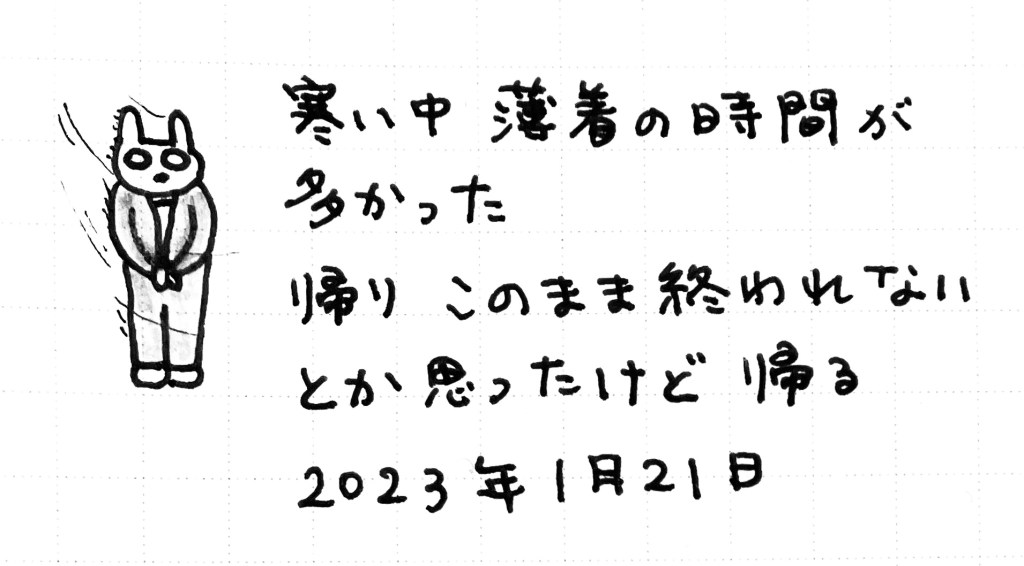 寒い中 薄着の時間が
多かった
帰り このまま終われない
とか思ったけど 帰る
2023年1月21日